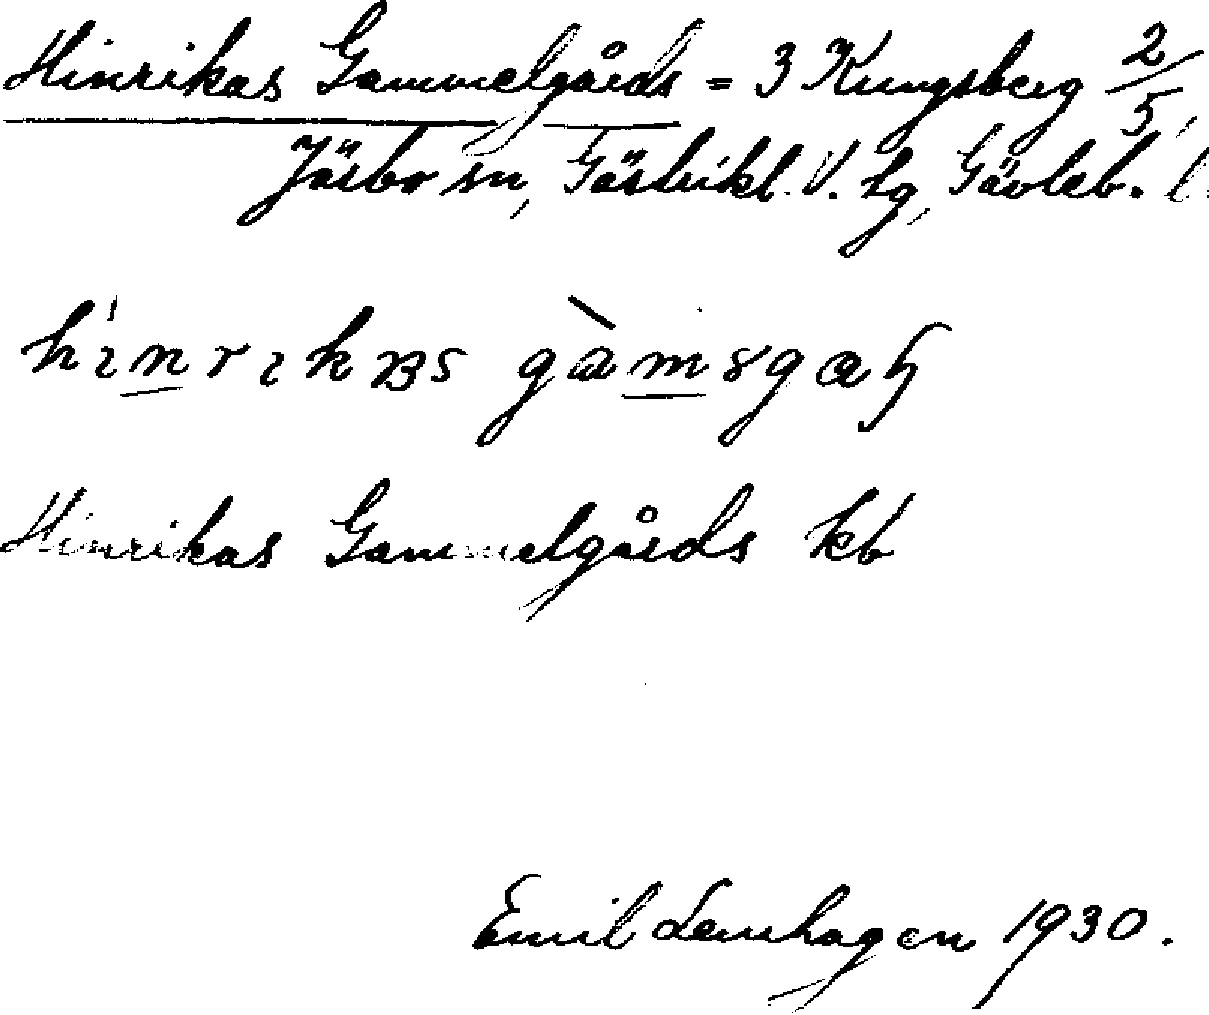 Hinrikas Gammelgårds = 3 Kungsberg 2/5,
Järbo sn, Gästrikl. V. tg, Gävleb. l.
Hinrikas Gammelgårds kb
Emil Lenhagen 1930.